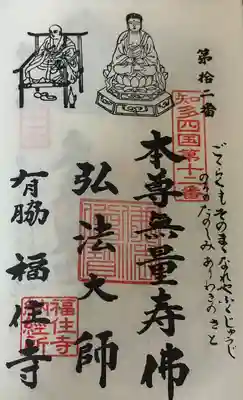 第拾二番
知多四国第十二番
ごくらくもそのまゝなれやふくじゅうじ
のちのたのしみありわきのさと
本尊無量寿佛
弘法大師
有脇 福住寺
福住寺
納経所